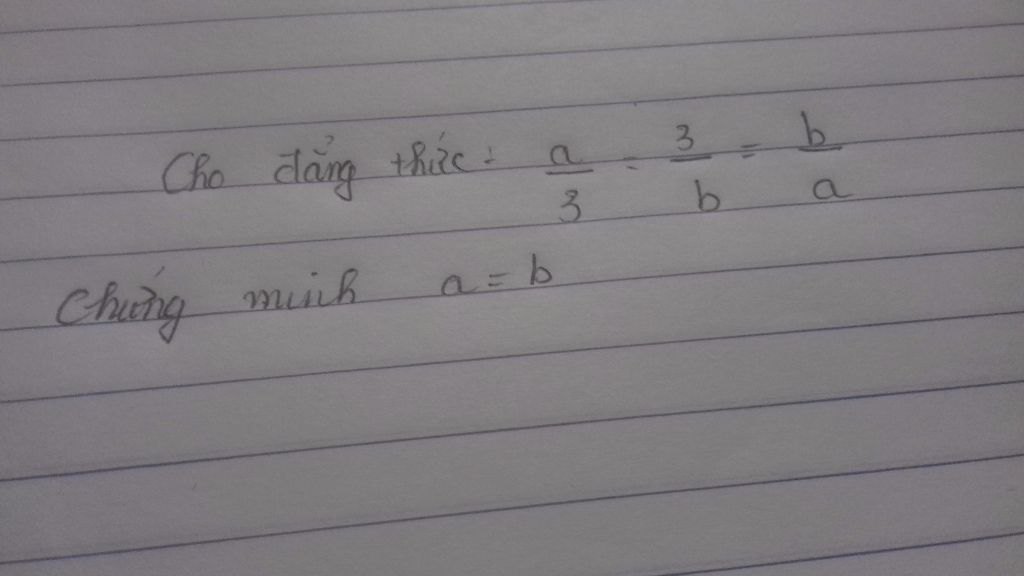 Cho đẳng thức: a/3 = 3/b = b/a
Chứng minh a = b